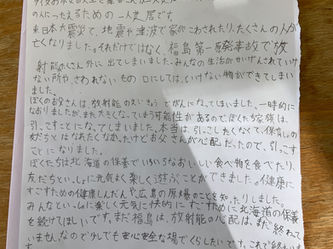 のんにったえるための一人芝居です。
東日本大震災で、地震や津波で家がこわされたり、たくさんの人が
亡くなりました。それだけではなく、福島第一原発事故で放
射能のんが外に出てしまいました。みんなの生活がかいぜんされていけ
ない所や、さわれない もの 口にしてはいけない物ができてしまい
ました。
ぼくのお父さんは、放射能の えいきょうで がんになってしまいました。一時的に
なおりましたが、また大きくなってしまう可能性があるのでぼくたち家族は、
引っこすことになってしまいました。本当は引っこしたくなくて、
はなれたくなかったけどお父さんが心配だったので、引っこす
ことになりました。
ぼくたちは北海道の保養でいろいろなおいしい食べ物を食べたり、
友だちといっしょに元気よく楽しく遊ぶことができました。健康に
すごすための健康しんだんや広島の原爆のことを知ったりしました。
みんなといっしょに楽しく元気に快的にすごすために北海道の保養
を続けてほしいです。まだ福島は、放射能の心配は、まだ終わって
いませんなので少しでも安心安全な場でくらしたいです。これで終わ